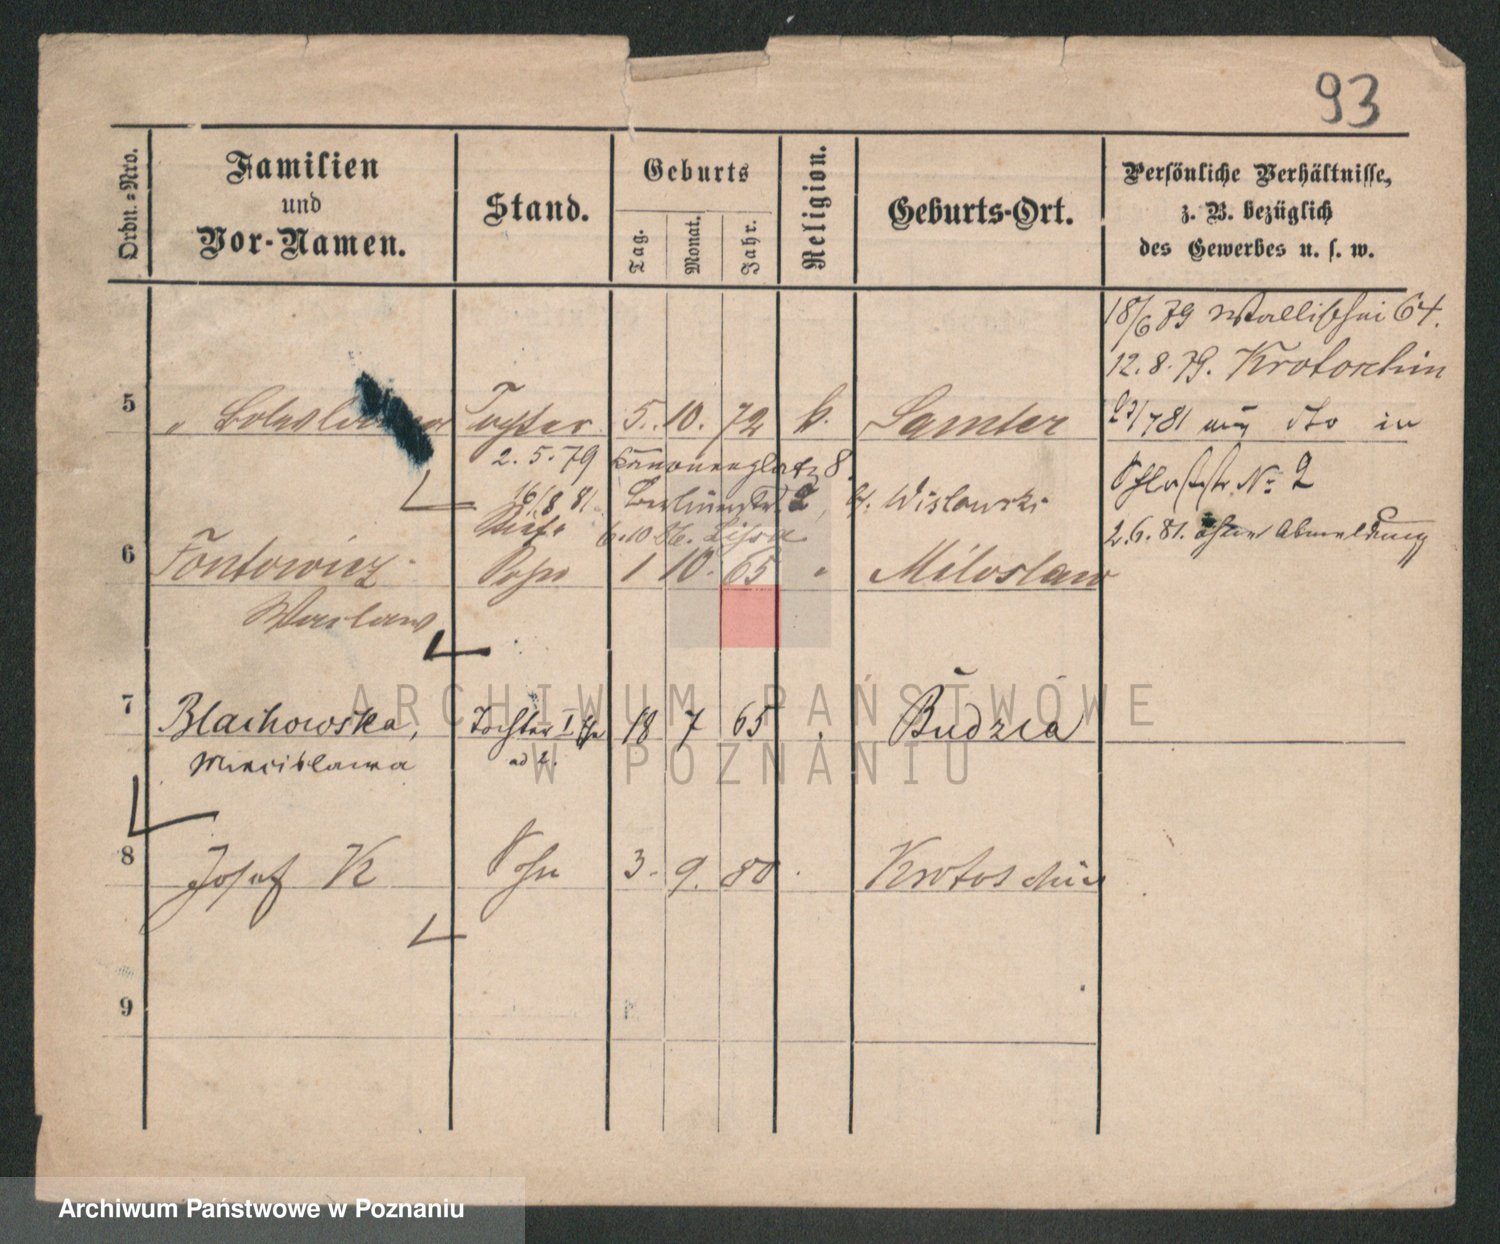 93
Ordn.=Nro.
Familien
und
Vor-Namen.
Stand.
Geburts
Tag.
Monat.
Jahr.
Religion.
Geburts-Ort.
Persönliche Verhältnisse,
z. B. bezüglich
des Gewerbes u. s. w.
18/6 79 Wallischei 64.
12. 8. 79. Krotoschin
5 " Boleslawa Tochter 5. 10. 72 k. Samter
781 in
2. 5. 79 Kanonenplatz 8.
16/8 81 Berlinerstr. 2, b. Wislowski
Schloßstr. No 2
6. 10 86. Lissa
2. 6. 81. ohne Abmeldung
6 Fontowicz Sohn 1 10. 65 " Miloslaw
Waclaw
7 Blachowska, Tochter I Ehe 18 7 65 . Budzia
Mieczislawa ad 2.
8 Josef K Sohn 3. 9. 80 . Krotoschin
9
ARCHIWUM PAŃSTWOWE
W POZNANIU
Archiwum Państwowe w Poznaniu